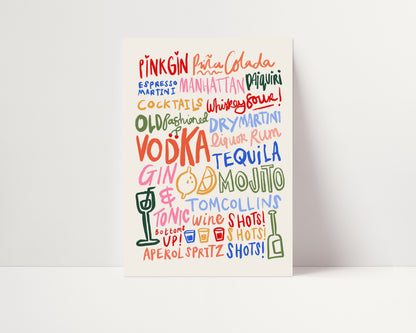 PINK GIN Piña Colada
ESPRESSO MARTINI MANHATTAN DAIQUIRI
COCKTAILS Whiskey Sour!
OLD fashioned DRY MARTINI
VODKA liquor Rum
TEQUILA
GIN MOJITO
& TOM COLLINS
TONIC wine SHOTS!
Bottoms UP! SHOTS!
APEROL SPRITZ SHOTS!